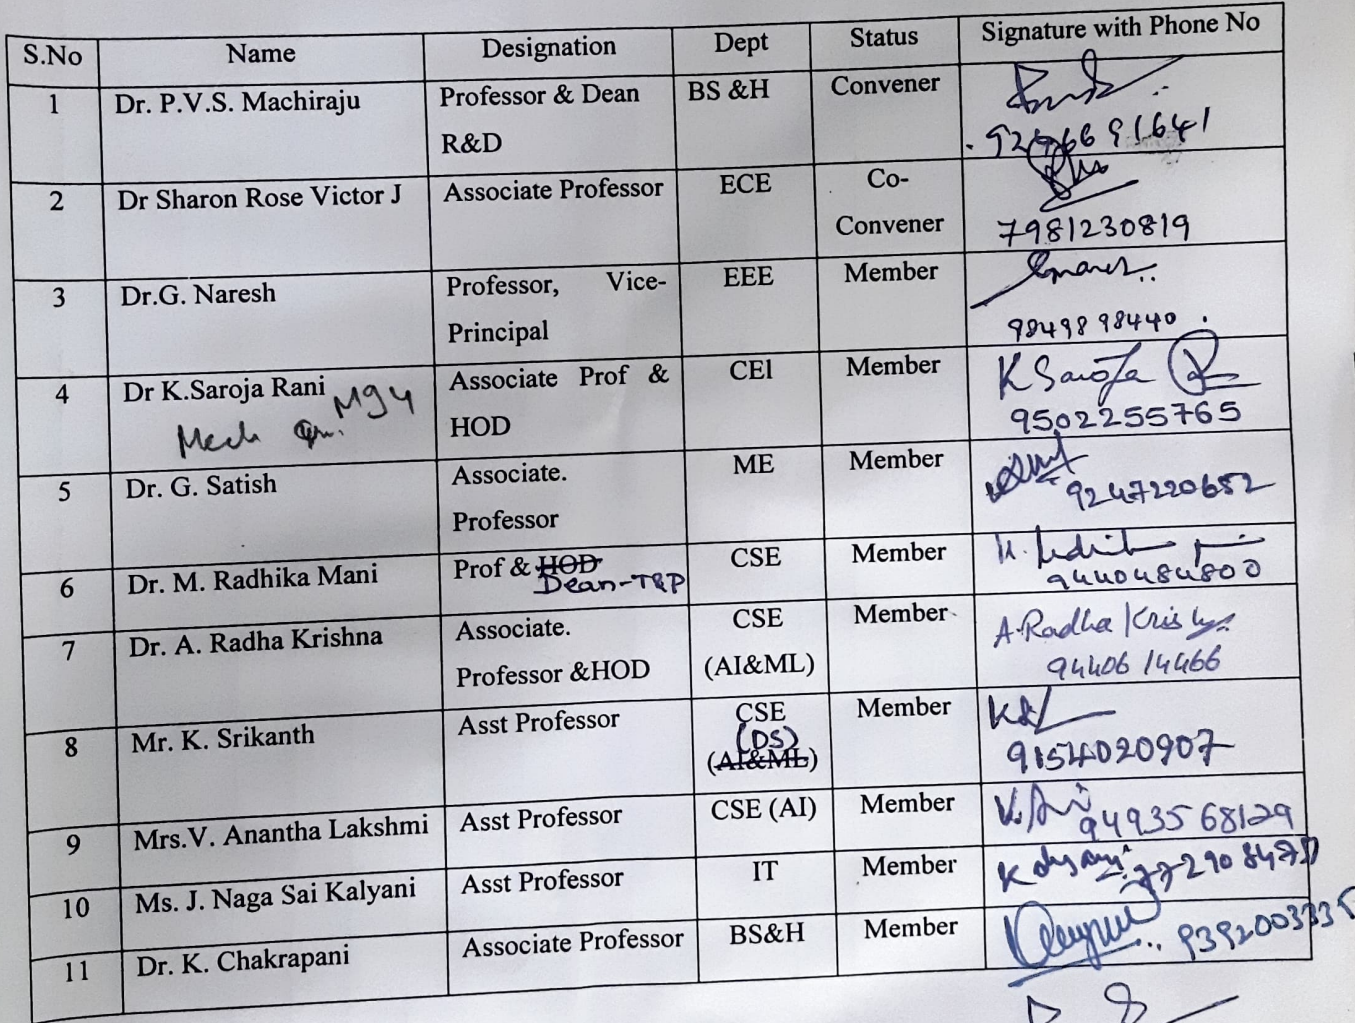 S.No Name Designation Dept Status Signature with Phone No
1 Dr. P.V.S. Machiraju Professor & Dean BS &H Convener
R&D
2 Dr Sharon Rose Victor J Associate Professor ECE Co-
Convener 7981230819
3 Dr.G. Naresh Professor, Vice- EEE Member
Principal 9849898440
4 Dr K.Saroja Rani Associate Prof & CEl Member K Saroja
Mech HOD 9502255765
5 Dr. G. Satish Associate. ME Member
Professor 9247220652
6 Dr. M. Radhika Mani Prof & HOD CSE Member
Dean-T&P 9440484800
7 Dr. A. Radha Krishna Associate. CSE Member A.Radha Krishna
Professor &HOD (AI&ML) 9440614466
8 Mr. K. Srikanth Asst Professor CSE Member
(DS)
(AI&ML) 9154020907
9 Mrs.V. Anantha Lakshmi Asst Professor CSE (AI) Member 9493568129
10 Ms. J. Naga Sai Kalyani Asst Professor IT Member Kalyani
11 Dr. K. Chakrapani Associate Professor BS&H Member